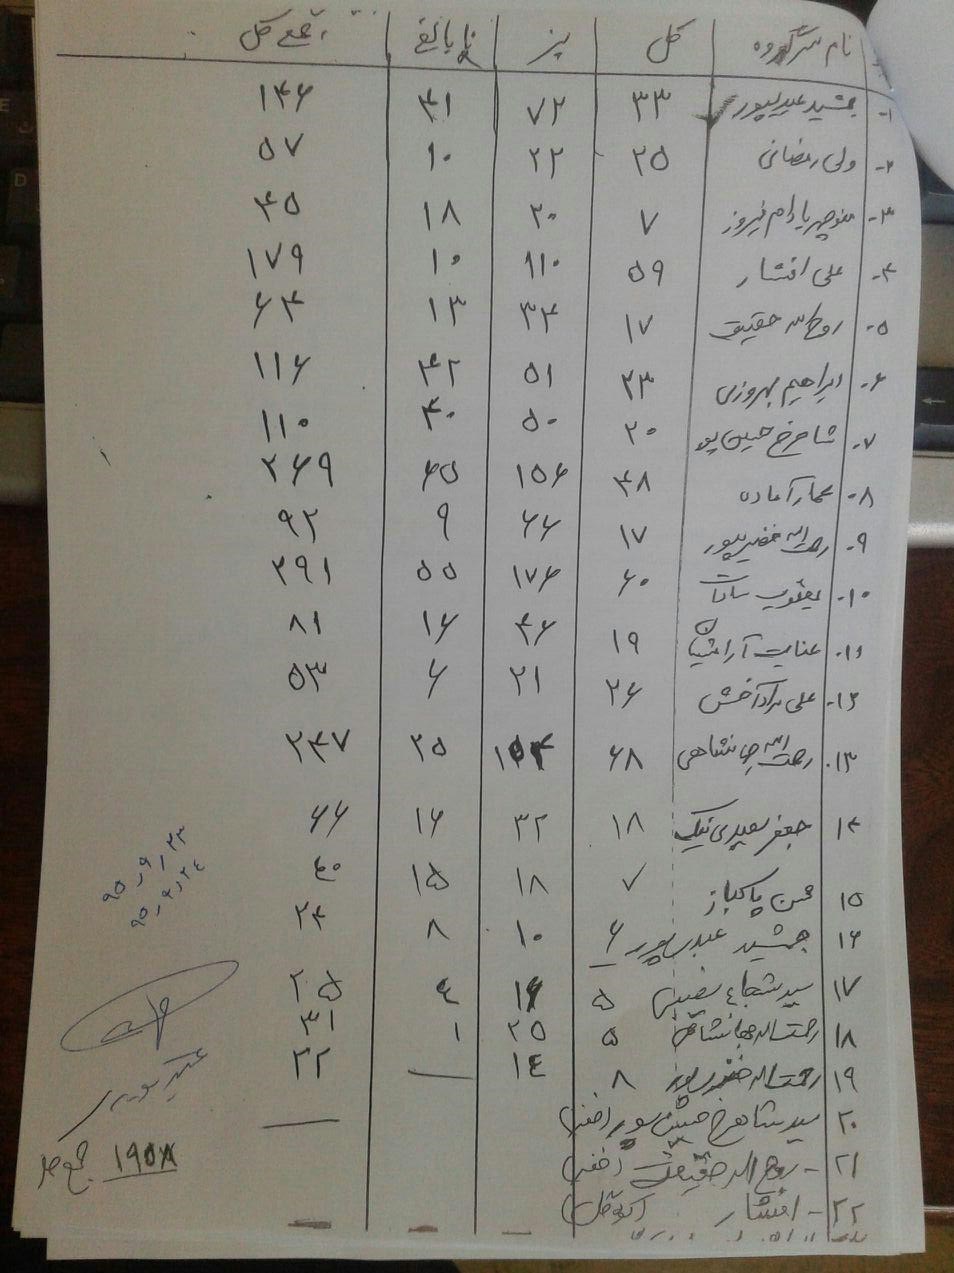 نام سرگروه کل بز نابالغ جمع کل
۱- جمشید عیدیپور ۳۳ ۷۲ ۴۱ ۱۴۶
۲- ولی رمضانی ۲۵ ۲۲ ۱۰ ۵۷
۳- منوچهر یارام فیروز ۷ ۲۰ ۱۸ ۴۵
۴- علی افشار ۵۹ ۱۱۰ ۱۰ ۱۷۹
۵- روح اله حقیقی ۱۷ ۳۴ ۱۳ ۶۴
۶- ابراهیم بهروزی ۲۳ ۵۱ ۴۲ ۱۱۶
۷- شاهرخ حسین پور ۲۰ ۵۰ ۴۰ ۱۱۰
۸- آماده ۴۸ ۱۵۶ ۶۵ ۲۶۹
۹- رحمت اله خضرپور ۱۷ ۶۶ ۹ ۹۲
۱۰- یعقوب سادات ۶۰ ۱۷۶ ۵۵ ۲۹۱
۱۱- عنایت ۱۹ ۴۶ ۱۶ ۸۱
۱۲- علی مراد آخش ۲۶ ۲۱ ۶ ۵۳
۱۳- رحمت اله جهانشاهی ۶۸ ۱۵۴ ۲۵ ۲۴۷
۱۴ جعفر سعیدی نیک ۱۸ ۳۲ ۱۶ ۶۶
۱۵ محسن پاکباز ۷ ۱۸ ۱۵ ۴۰
۱۶ جمشید عیدی پور ۶ ۱۰ ۸ ۲۴
۱۷ سید شجاع نصیبی ۵ ۱۶ ۴ ۲۵
۱۸ رحمت اله جهانشاهی ۵ ۲۵ ۱ ۳۱
۱۹ رحمت اله خضرپور ۸ ۱۴ ۲۲
۲۰ سید شاهرخ حسین پور
۲۱- روح اله حقیقت
۲۲- افشار
۹۵٫۹٫۲۳
۹۵٫۹٫۲۴
۱۹۵۸